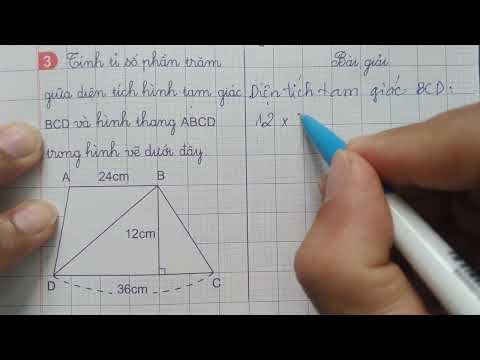 3 Tính tỉ số phần trăm
giữa diện tích hình tam giác
BCD và hình thang ABCD
trong hình vẽ dưới đây.
A 24cm B
12cm
D 36cm C
Bài giải
Diện tích tam giác BCD:
12 ×